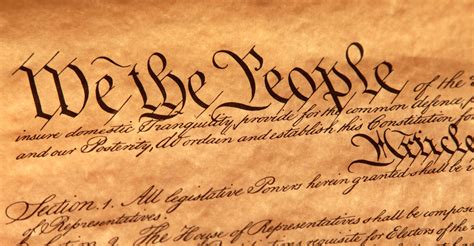 We the People of the
insure domestic Tranquility, provide for the common defence,
and our Posterity, do ordain and establish this Constitution fo
Article
Section 1. All legislative Powers herein granted shall be
of Representatives.
The House of Representatives shall be compose
requisite for Electors of the